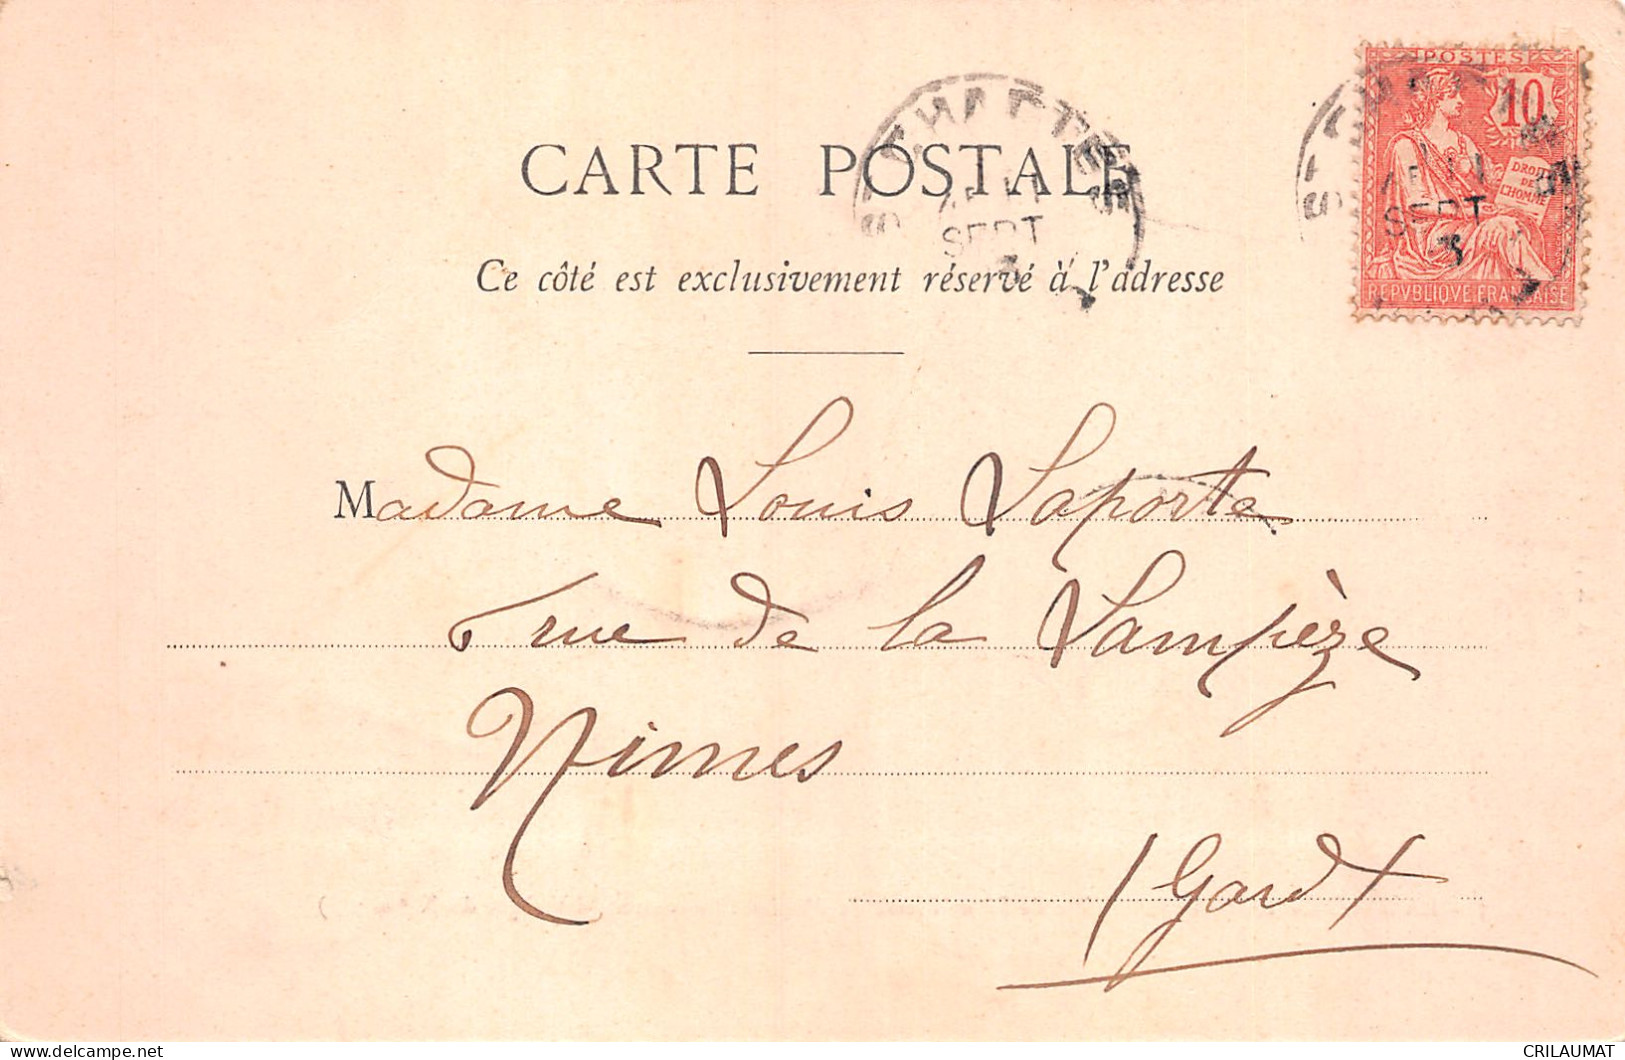 POSTES
10
DROITS
DE
L'HOMME
REPVBLIQVE FRANÇAISE
CARTE POSTALE
SEPT
SEPT
Ce côté est exclusivement réservé à l'adresse
Madame Louis Laporte
rue de la Lampèze
Nimes
Gard
CRILAUMAT